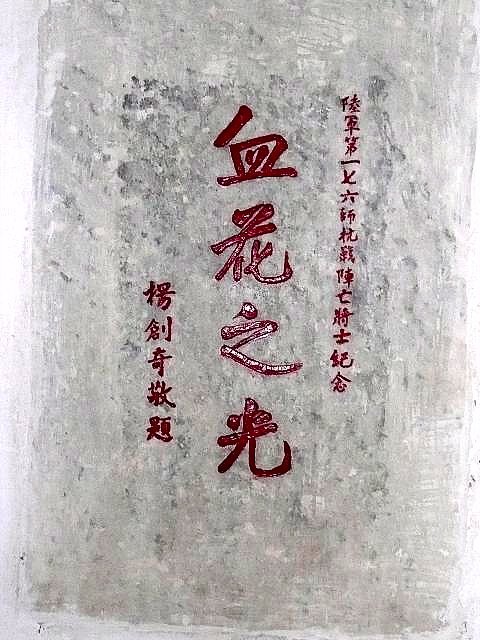 陸軍第一七六師抗戰陣亡將士紀念
血花之光
楞創奇敬題